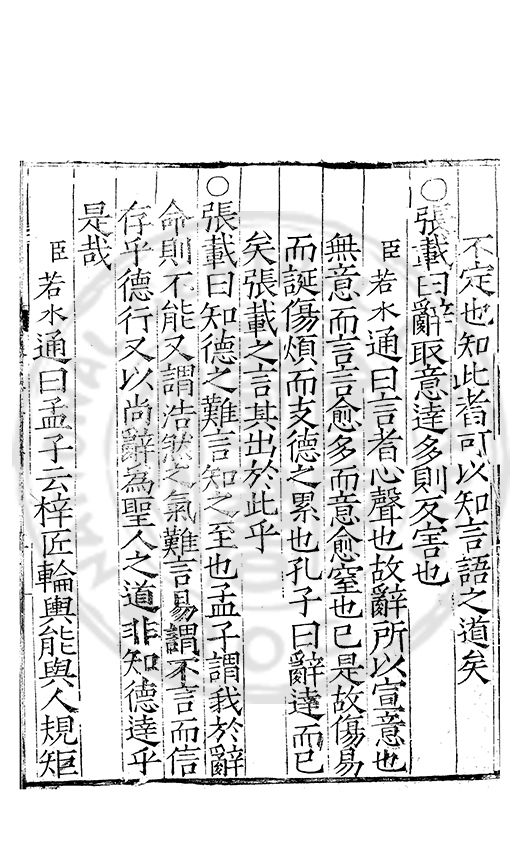 不定也知此者可以知言語之道矣
○張載曰辭取意達多則反害也
臣若水通曰言者心聲也故辭所以宣意也
無意而言言愈多而意愈窒也已是故傷易
而誕傷煩而支德之累也孔子曰辭達而已
矣張載之言其出於此乎
○張載曰知德之難言知之至也孟子謂我於辭
命則不能又謂浩然之氣難言易謂不言而信
存乎德行又以尚辭為聖人之道非知德達乎
是哉
臣若水通曰孟子云梓匠輪輿能與人規矩